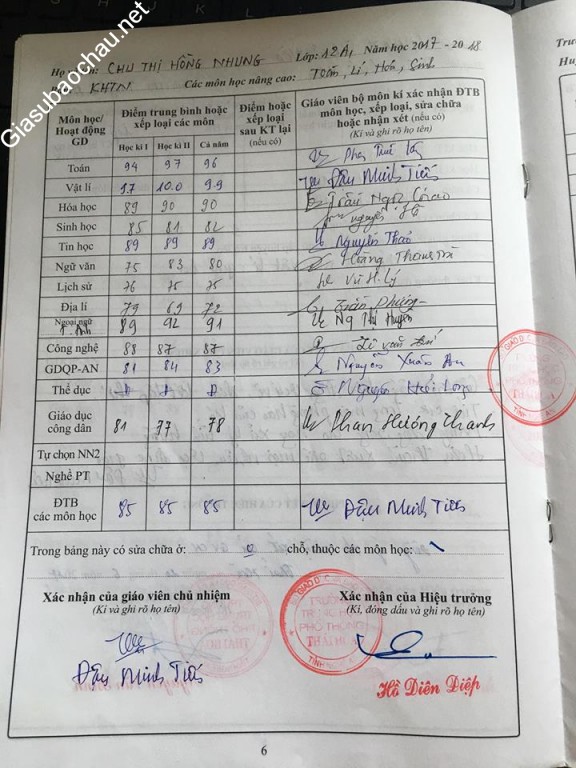 Giasubaochau.net
Họ tên: CHU THỊ HỒNG NHUNG Lớp: 12A1 Năm học 2017 - 2018
KHTN Các môn học nâng cao: Toán, Lí, Hóa, Sinh
Môn học/ Hoạt động GD
Điểm trung bình hoặc xếp loại các môn
Học kì I Học kì II Cả năm
Điểm hoặc xếp loại sau KT lại (nếu có)
Giáo viên bộ môn kí xác nhận ĐTB môn học, xếp loại, sửa chữa hoặc nhận xét (nếu có)
(Kí và ghi rõ họ tên)
Toán 94 97 96
Vật lí 9.7 10.0 9.9 Đậu Minh Tiến
Hóa học 89 90 90 Trần Ngọc
Sinh học 85 81 82 Nguyễn
Tin học 89 89 89 Nguyễn Thảo
Ngữ văn 75 83 80 Hoàng Thanh Trà
Lịch sử 76 75 75 Vũ H. Lý
Địa lí 79 69 72 Trần Phượng
Ngoại ngữ T. Anh 89 92 91 Ng Thị Huyền
Công nghệ 88 87 87 Lê Văn
GDQP-AN 81 84 83 Nguyễn Xuân
Thể dục Đ Đ Đ Nguyễn Khải Long
Giáo dục công dân 81 77 78 Phan Hương Thanh
Tự chọn NN2
Nghề PT
ĐTB các môn học 85 85 85 Đậu Minh Tiến
Trong bảng này có sửa chữa ở: 0 chỗ, thuộc các môn học: \
Xác nhận của giáo viên chủ nhiệm Xác nhận của Hiệu trưởng
(Kí và ghi rõ họ tên) (Kí, đóng dấu và ghi rõ họ tên)
TRƯỜNG
TRUNG HỌC
PHỔ THÔNG
THÁI HÒA
Đậu Minh Tiến
Hồ Diên Điệp
6